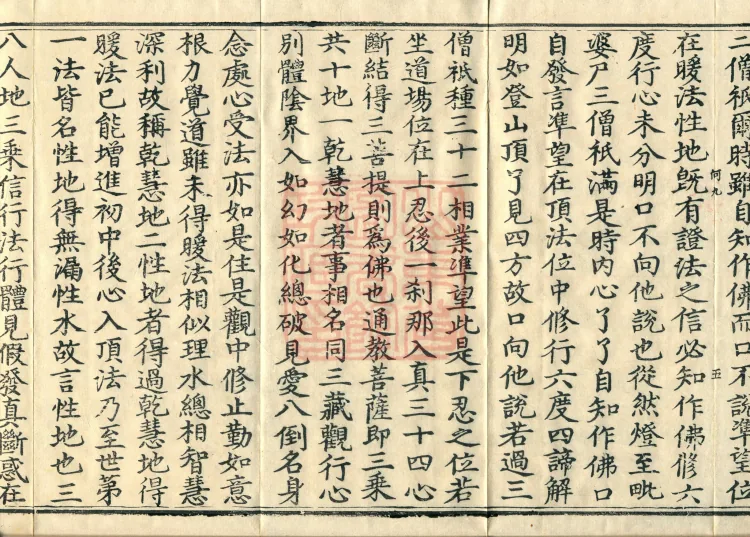 二僧祇爾時雖自知作佛而口不說準望位
在暖法性地既有證法之信必知作佛修六
度行心未分明口不向他說也從然燈至毗
婆尸三僧祇滿是時內心了了自知作佛口
自發言準望在頂法位中修行六度四諦解
明如登山頂了見四方故口向他說若過三
僧祇種三十二相業準望此是下忍之位若
坐道場位在上忍後一剎那入真三十四心
斷結得三菩提則為佛也通教菩薩即三乘
共十地一乾慧地者事相名同三藏觀行心
別體陰界入如幻如化總破見愛八倒名身
念處心受法亦如是住是觀中修止勤如意
根力覺道雖未得暖法相似理水總相智慧
深利故稱乾慧地二性地者得過乾慧地得
暖法已能增進初中後心入頂法乃至世第
一法皆名性地得無漏性水故言性地也三
八人地三乘信行法行體見假發真斷惑在
何九
五